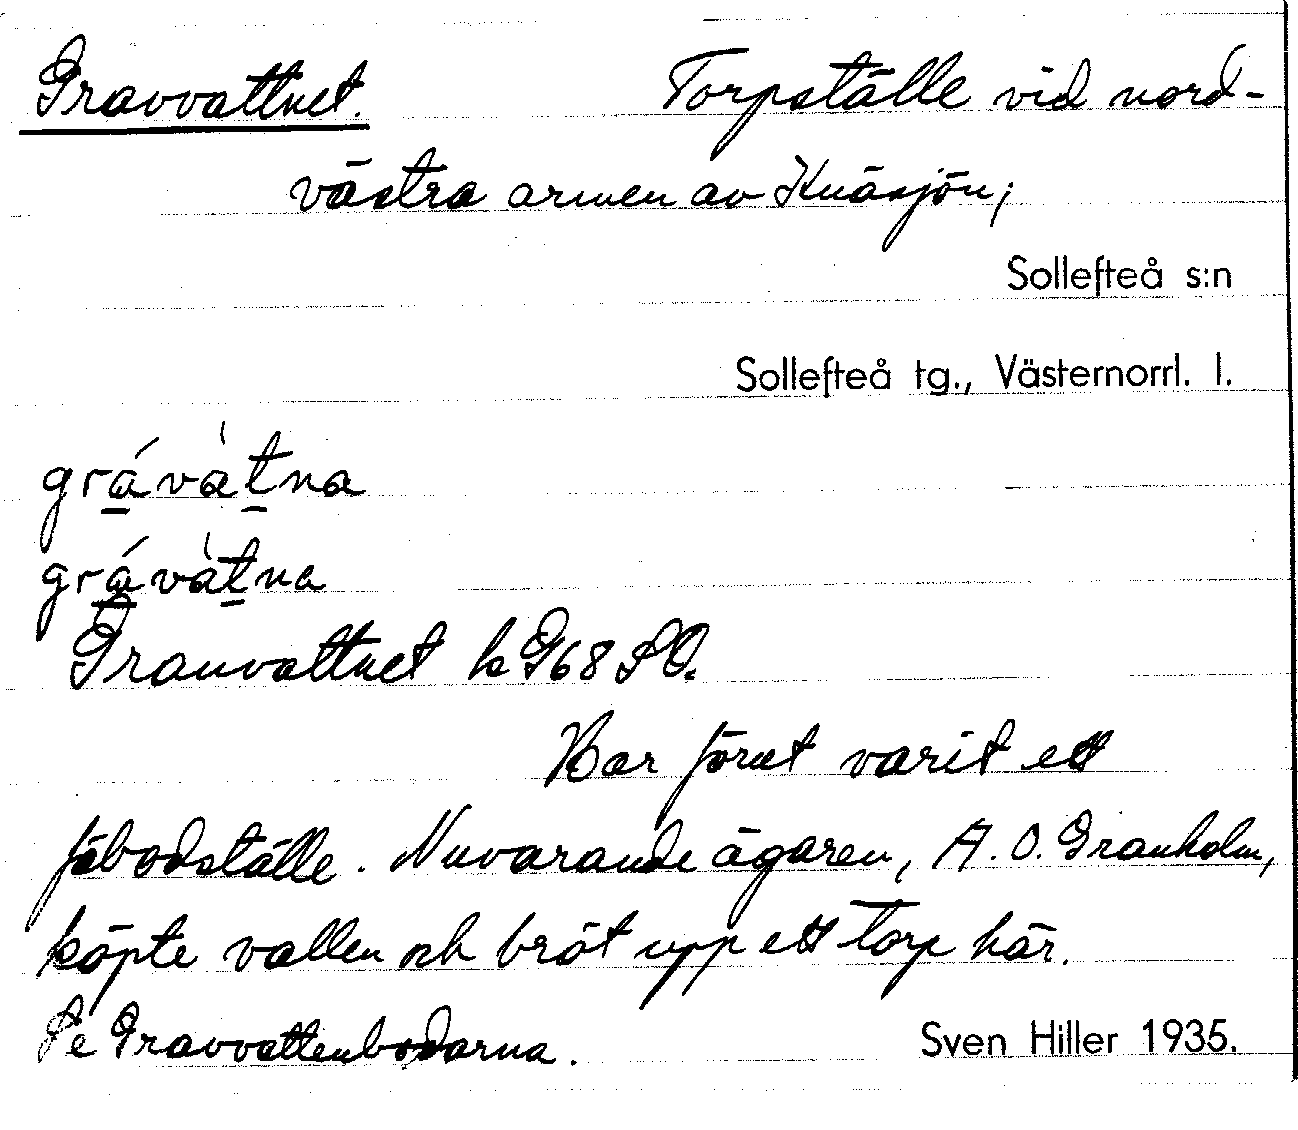 Gravvattnet. Torpställe vid nord-
västra armen av Knäsjön;
Sollefteå s:n
Sollefteå tg., Västernorrl. l.
grávàtna
grávàtna
Granvattnet k G68 SO.
Har förut varit ett
fäbodställe. Nuvarande ägaren, A. O. Granholm,
köpte vallen och bröt upp ett torp här.
Se Gravvattenbodarna. Sven Hiller 1935.